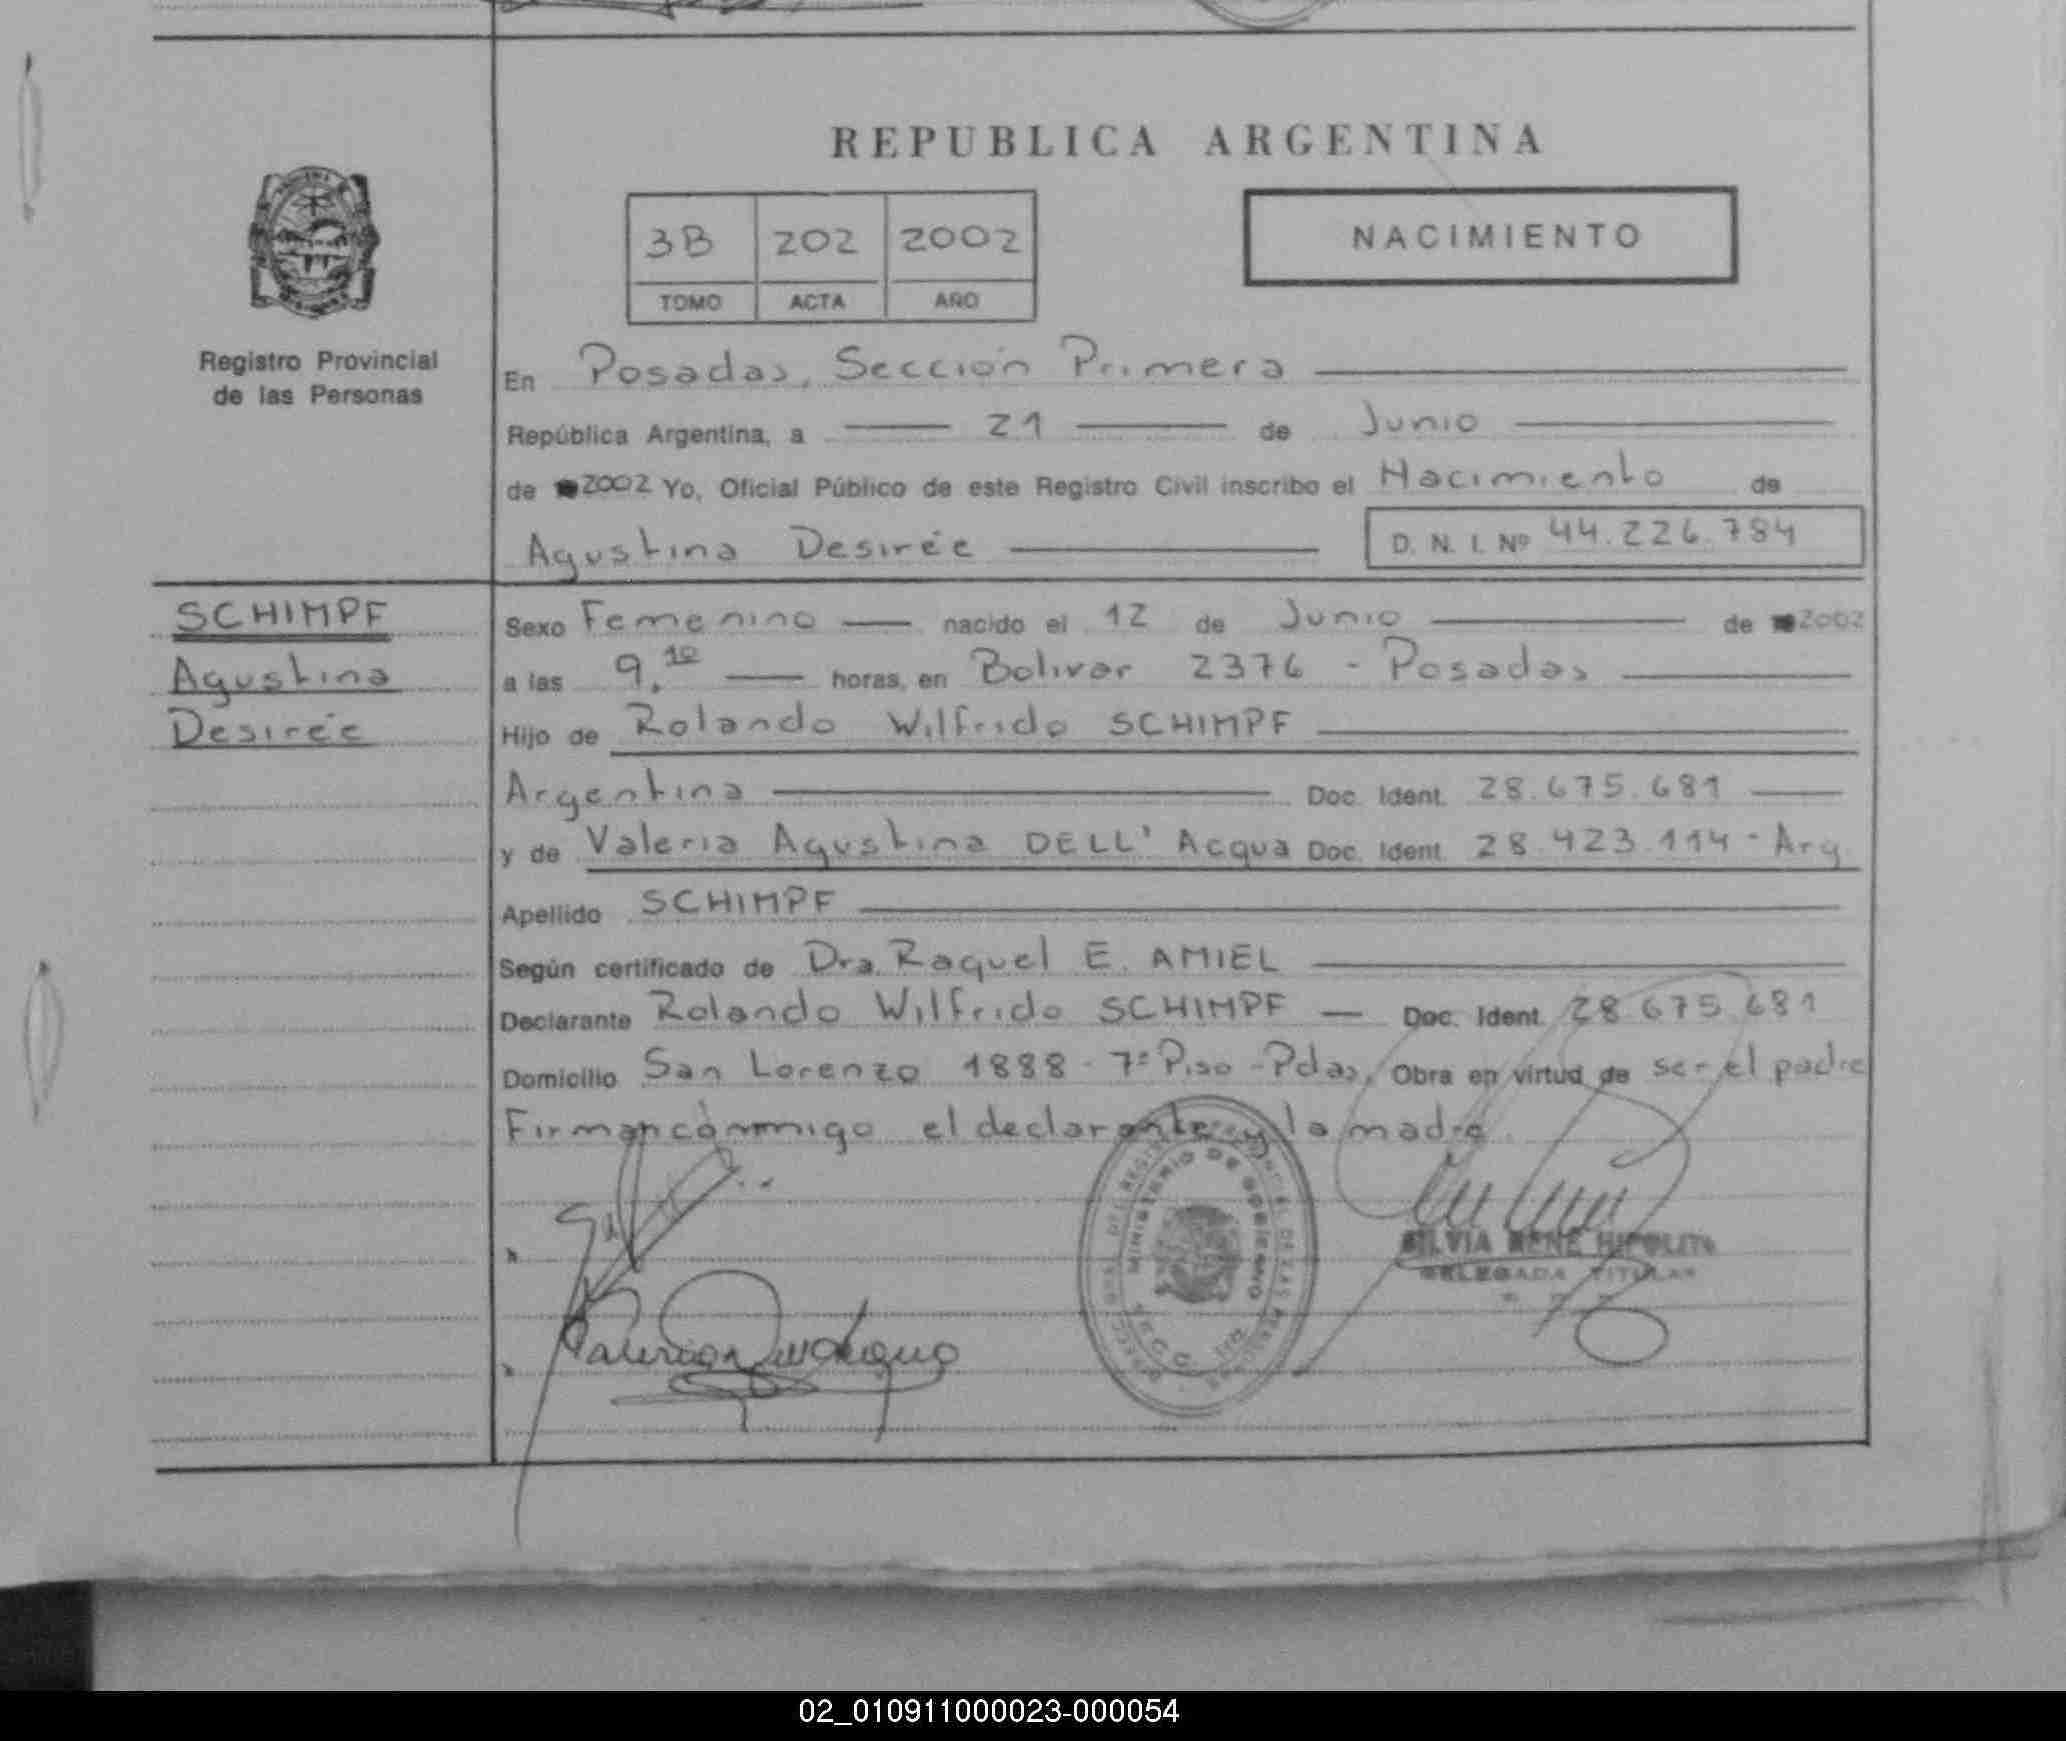 REPUBLICA ARGENTINA
3B 202 2002
TOMO ACTA AÑO
NACIMIENTO
Registro Provincial
de las Personas
En Posadas, Sección Primera
República Argentina, a 21 de Junio
de 2002 Yo, Oficial Público de este Registro Civil inscribo el Nacimiento de
Agustina Desirée D. N. I. Nº 44.226.784
SCHIMPF
Agustina
Desirée
Sexo Femenino nacido el 12 de Junio de 2002
a las 9.10 horas, en Bolivar 2376 - Posadas
Hijo de Rolando Wilfrido SCHIMPF
Argentina Doc. Ident. 28.675.681
y de Valeria Agustina DELL' Acqua Doc. Ident. 28.423.114 - Arg.
Apellido SCHIMPF
Según certificado de Dra. Raquel E. AMIEL
Declarante Rolando Wilfrido SCHIMPF Doc. Ident. 28.675.681
Domicilio San Lorenzo 1888 - 7º Piso - Pdas, Obra en virtud de ser el padre
Firman conmigo el declarante y la madre.
MINISTERIO DE GOBIERNO
SECC. 1ra
SILVIA RENE HIPOLITO
DELEGADA TITULAR
02_010911000023-000054